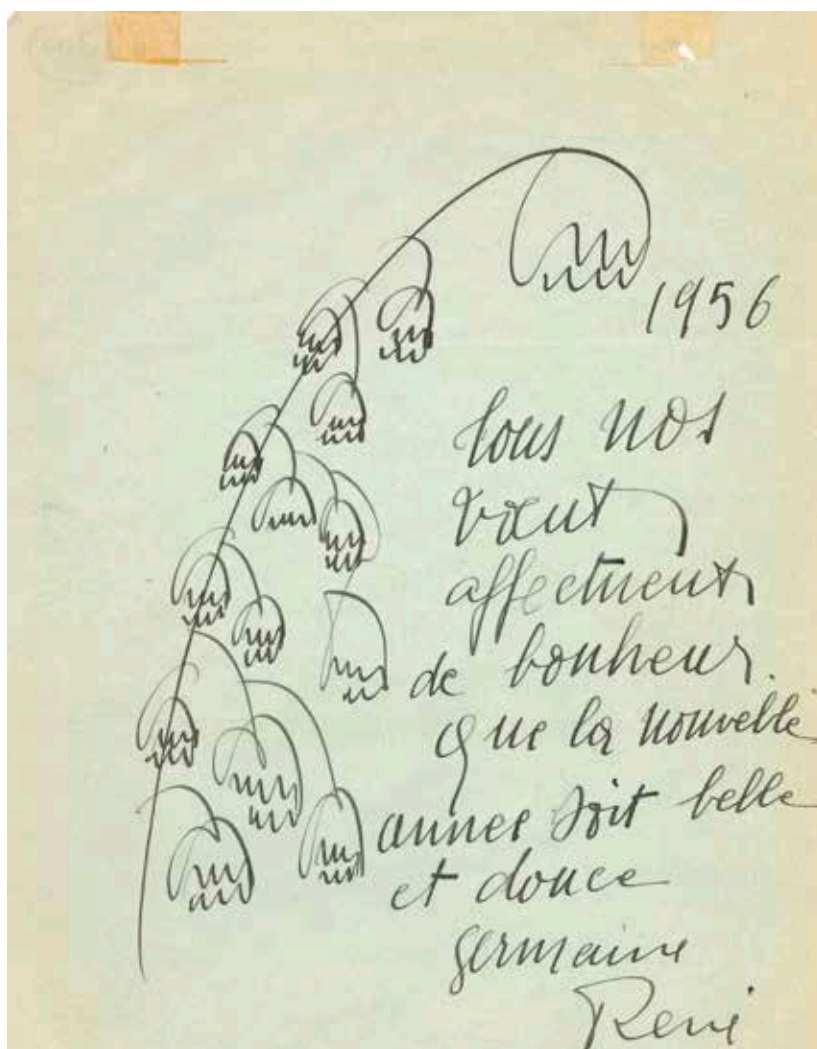 1956
Tous nos
vœux
affectueux
de bonheur.
que la nouvelle
annee soit belle
et douce
germaine
René